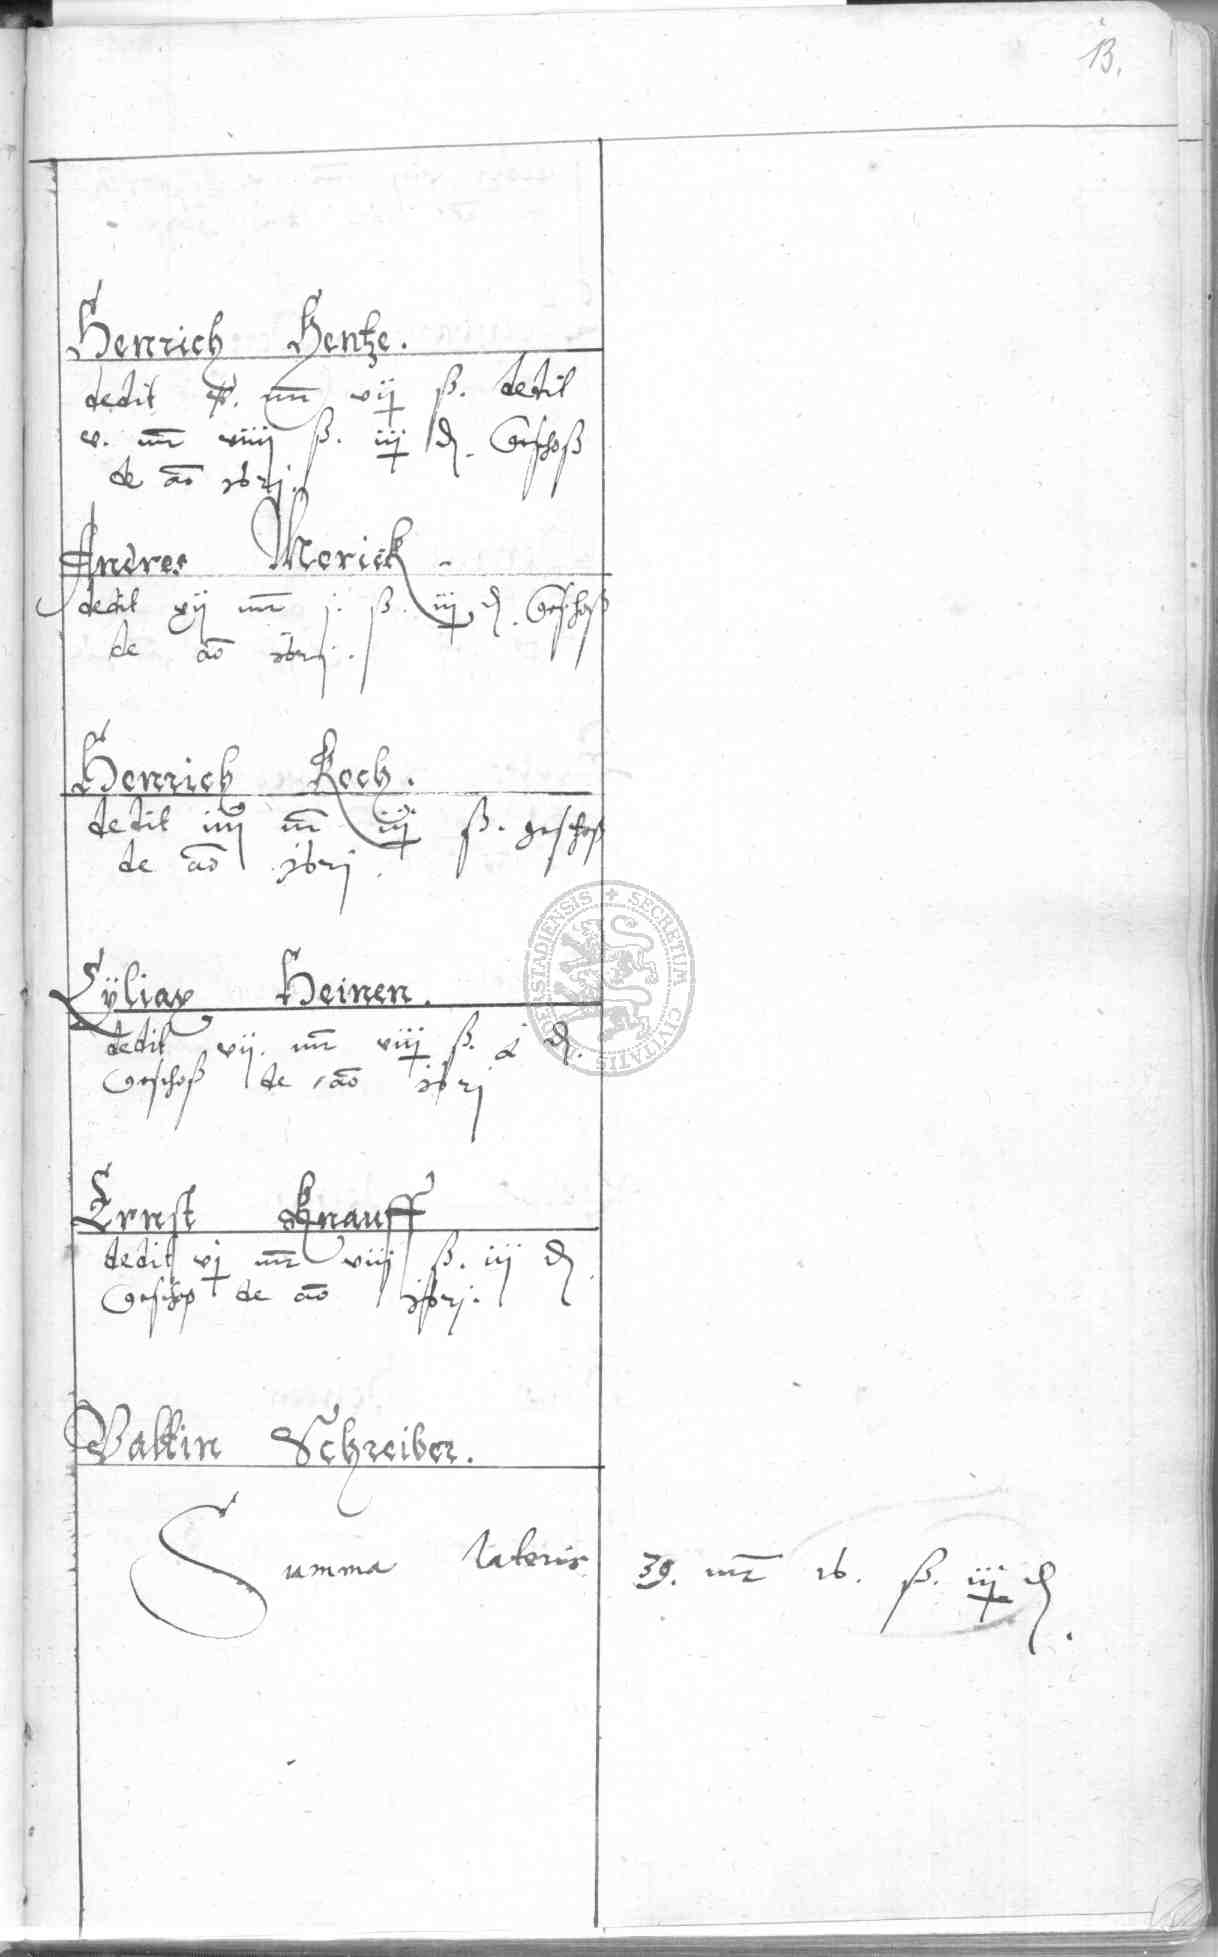 13.
Henrich Hentze.
dedit mr vij ß. dedit
v. mr viiij ß. iij d. Geschoß
de ao
Andres Morick
dedit xij mr j. ß. iij d. Geschoß
de ao
Henrich Koch.
dedit iiij mr iij ß. geschoß
de ao
Cÿliax Heinen.
dedit vij. mr viij ß. d.
Geschoß de ao
Ernst Knauff
dedit vj mr viij ß. iij d
Geschoß de ao
Valtin Schreiber.
Summa lateris 39. mr 16. ß. iij d.
SECRETUM CIVITATIS